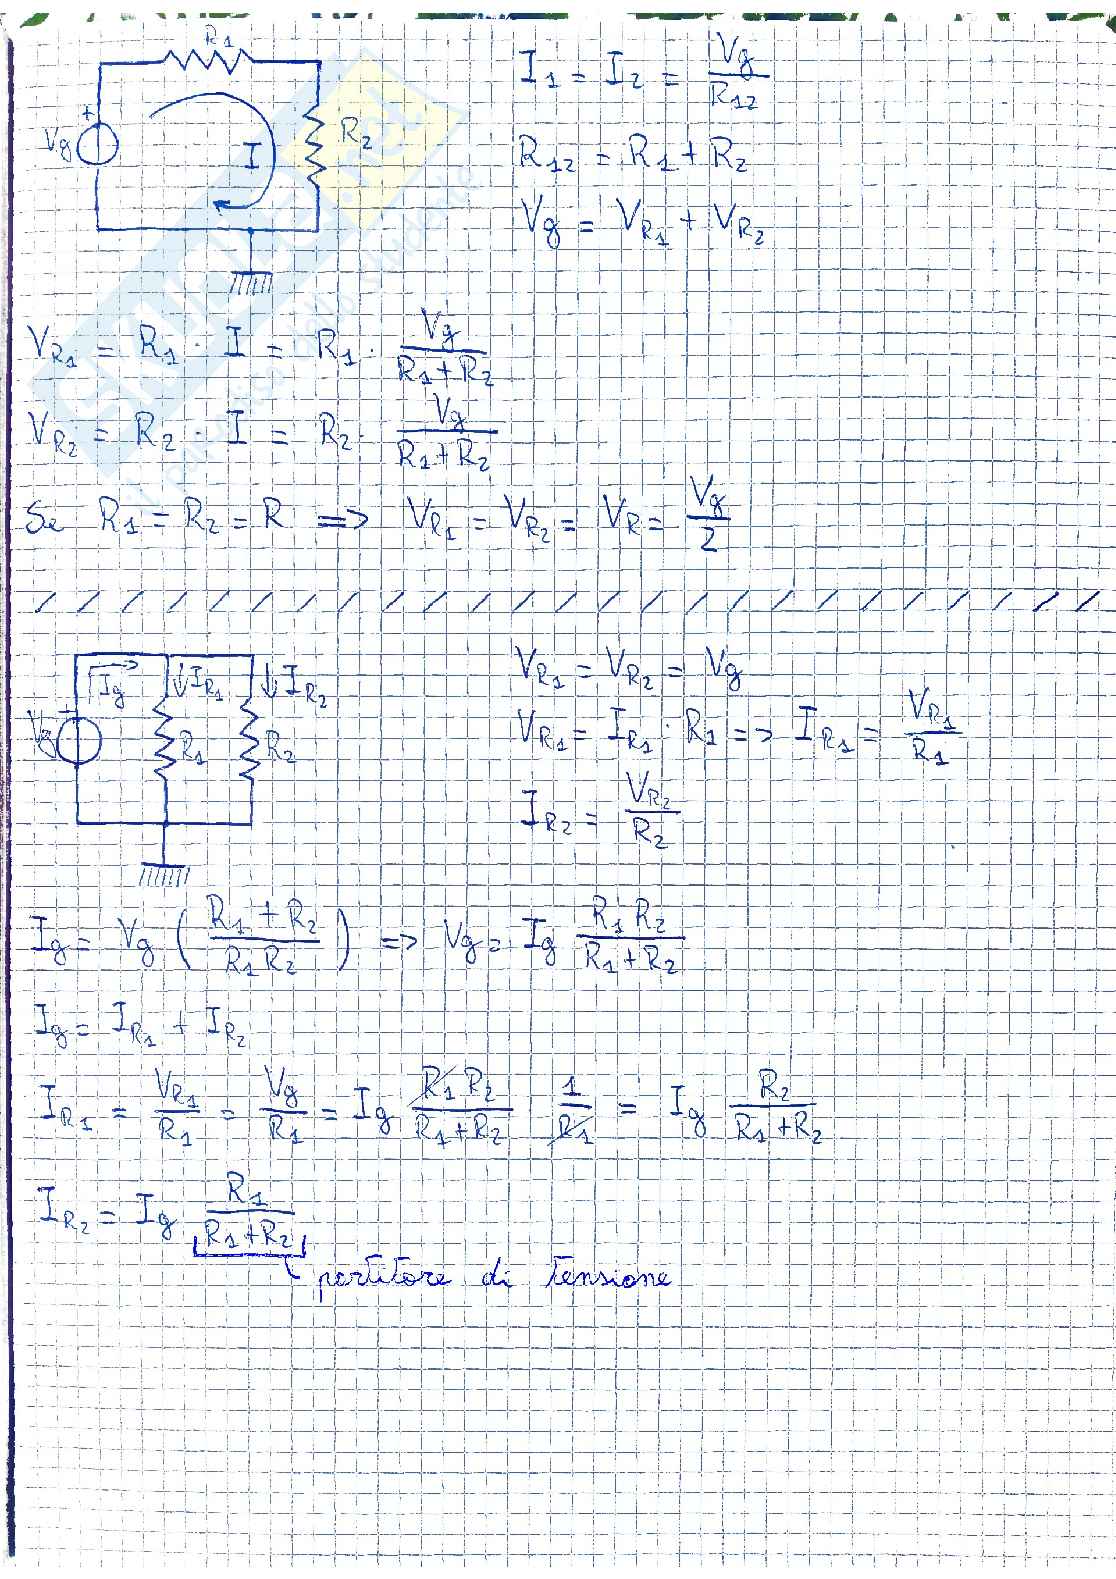 R1
Vg
+
I
R2
I1 = I2 = Vg/R12
R12 = R1 + R2
Vg = VR1 + VR2
VR1 = R1 · I = R1 · Vg/(R1+R2)
VR2 = R2 · I = R2 · Vg/(R1+R2)
Se R1 = R2 = R => VR1 = VR2 = VR = Vg/2
Ig
IR1
IR2
Vg
R1
R2
VR1 = VR2 = Vg
VR1 = IR1 · R1 => IR1 = VR1/R1
IR2 = VR2/R2
Ig = Vg ( (R1 + R2)/(R1 R2) ) => Vg = Ig (R1 R2)/(R1+R2)
Ig = IR1 + IR2
IR1 = VR1/R1 = Vg/R1 = Ig (R1 R2)/(R1+R2) 1/R1 = Ig R2/(R1+R2)
IR2 = Ig R1/(R1+R2)
partitore di tensione
SKUOLA.net
il paradiso dello studente